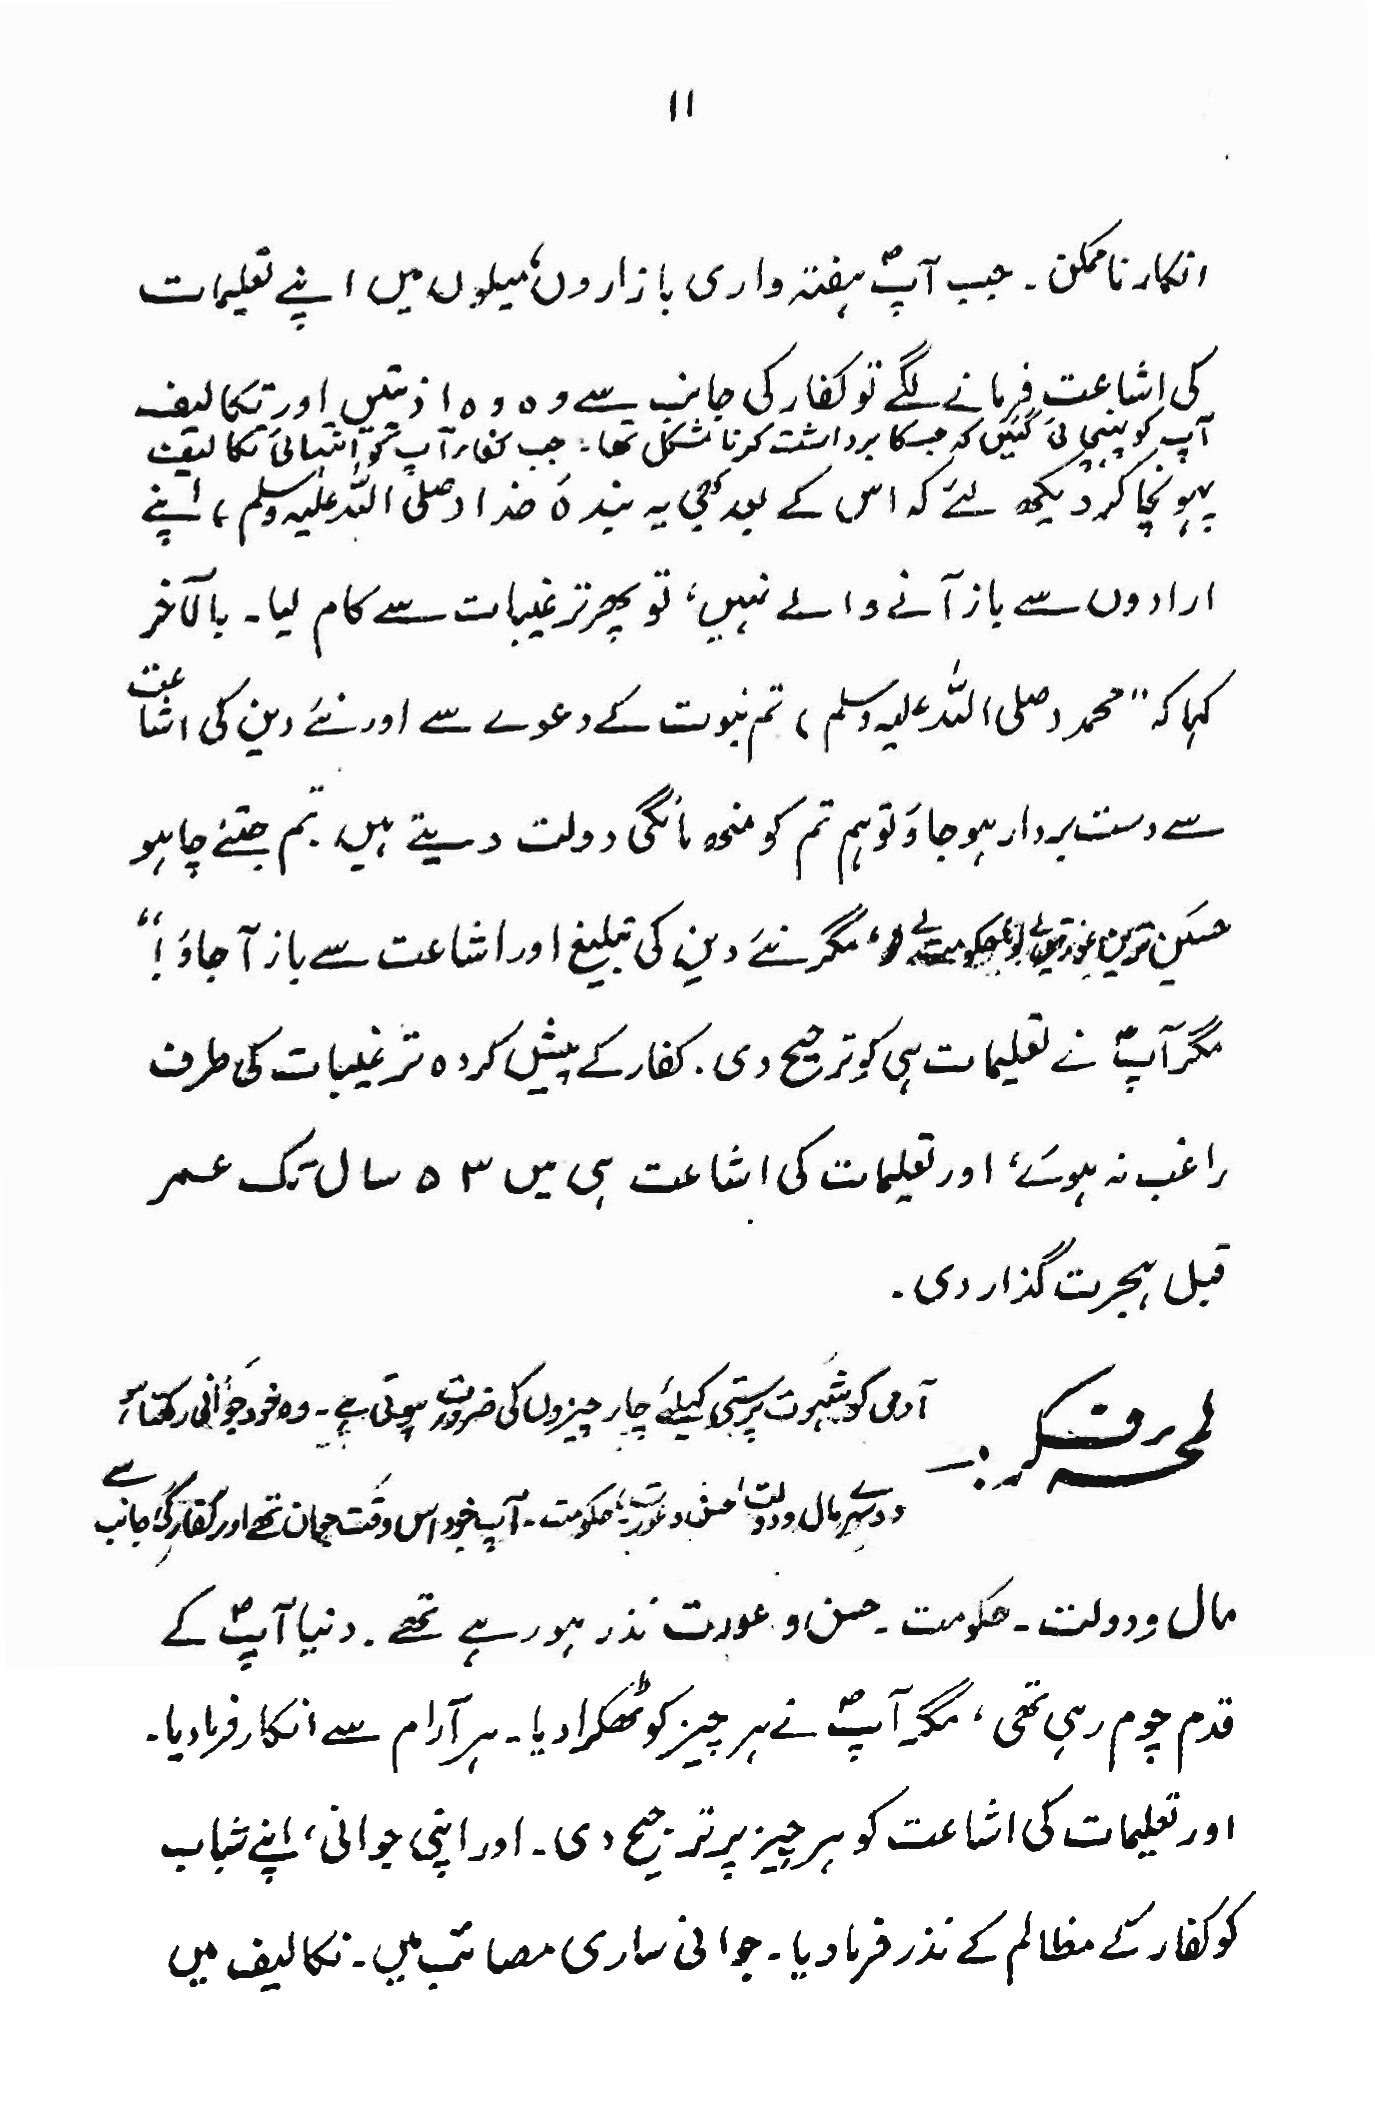 ۱۱
انکار ناممکن ۔ جب آپؐ ہفتہ واری بازاروں، میلوں میں اپنے تعلیمات
کی اشاعت فرمانے لگے تو کفار کی جانب سے وہ وہ اذیتیں اور تکالیف
آپ کو پہنچائی گئیں کہ جسکا برداشت کرنا مشکل تھا۔ جب کفار آپ کو انتہائی تکالیف
پہونچا کر دیکھ لئے کہ اس کے بعد بھی یہ بندۂ خدا (صلی اللہ علیہ وسلم) اپنے
ارادوں سے باز آنے والے نہیں، تو پھر ترغیبات سے کام لیا۔ بالآخر
کہا کہ "محمد (صلی اللہ علیہ وسلم) تم نبوت کے دعوے سے اور نئے دین کی اشاعت
سے دست بردار ہو جاؤ تو ہم تم کو منھ مانگی دولت دیتے ہیں، تم جتنے چاہو
حسین ترین عورتیں لے لو، حکومت لے لو، مگر نئے دین کی تبلیغ اور اشاعت سے باز آ جاؤ!"
مگر آپؐ نے تعلیمات ہی کو ترجیح دی. کفار کے پیش کردہ ترغیبات کی طرف
راغب نہ ہوئے، اور تعلیمات کی اشاعت ہی میں ۵۳ سال تک عمر
قبل ہجرت گذار دی.
لمحہ فکر :۔ آدمی کو شہوت پرستی کیلئے چار چیزوں کی ضرورت ہوتی ہے۔ وہ خود جوانی رکھتا ہو،
دوسرے مال و دولت، حسن و عورت، حکومت۔ آپ خود اس وقت جوان تھے اور کفار کی جانب سے
مال و دولت۔ حکومت۔ حسن و عورت نذر ہو رہے تھے۔ دنیا آپؐ کے
قدم چوم رہی تھی، مگر آپؐ نے ہر چیز کو ٹھکرا دیا۔ ہر آرام سے انکار فرما دیا۔
اور تعلیمات کی اشاعت کو ہر چیز پر ترجیح دی۔ اور اپنی جوانی، اپنے شباب
کو کفار کے مظالم کے نذر فرما دیا۔ جوانی ساری مصائب میں۔ تکالیف میں